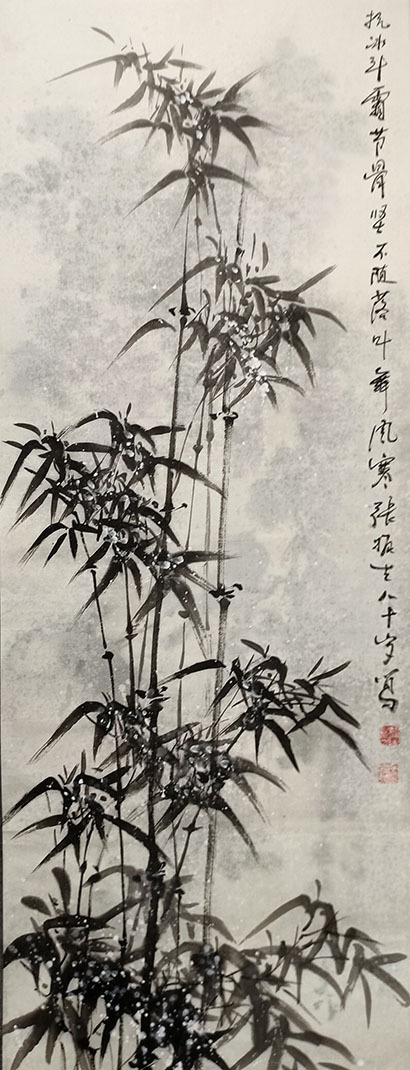 抗冰斗霜节骨坚不随落叶舞风寒张振生八十岁写